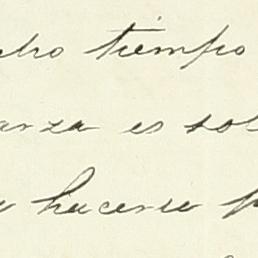 cho tiempo
anza es sol
hacerse p